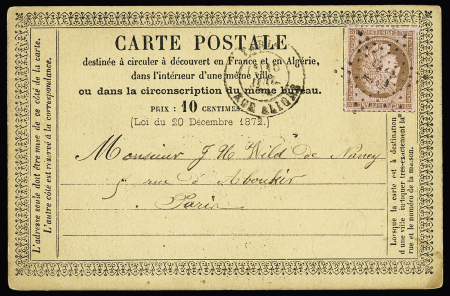 CARTE POSTALE
destinée à circuler à découvert en France et en Algérie,
dans l'intérieur d'une même ville
ou dans la circonscription du même bureau.
PRIX : 10 CENTIMES
(Loi du 20 Décembre 1872.)
Monsieur J H Wild de Nancy
5 rue d'Aboukir
Paris
L'adresse seule doit être mise de ce côté de la carte.
L'autre côté est réservé à la correspondance.
Lorsque la carte est à destination
d'une ville indiquer très-exactement la
rue et le numéro de la maison.